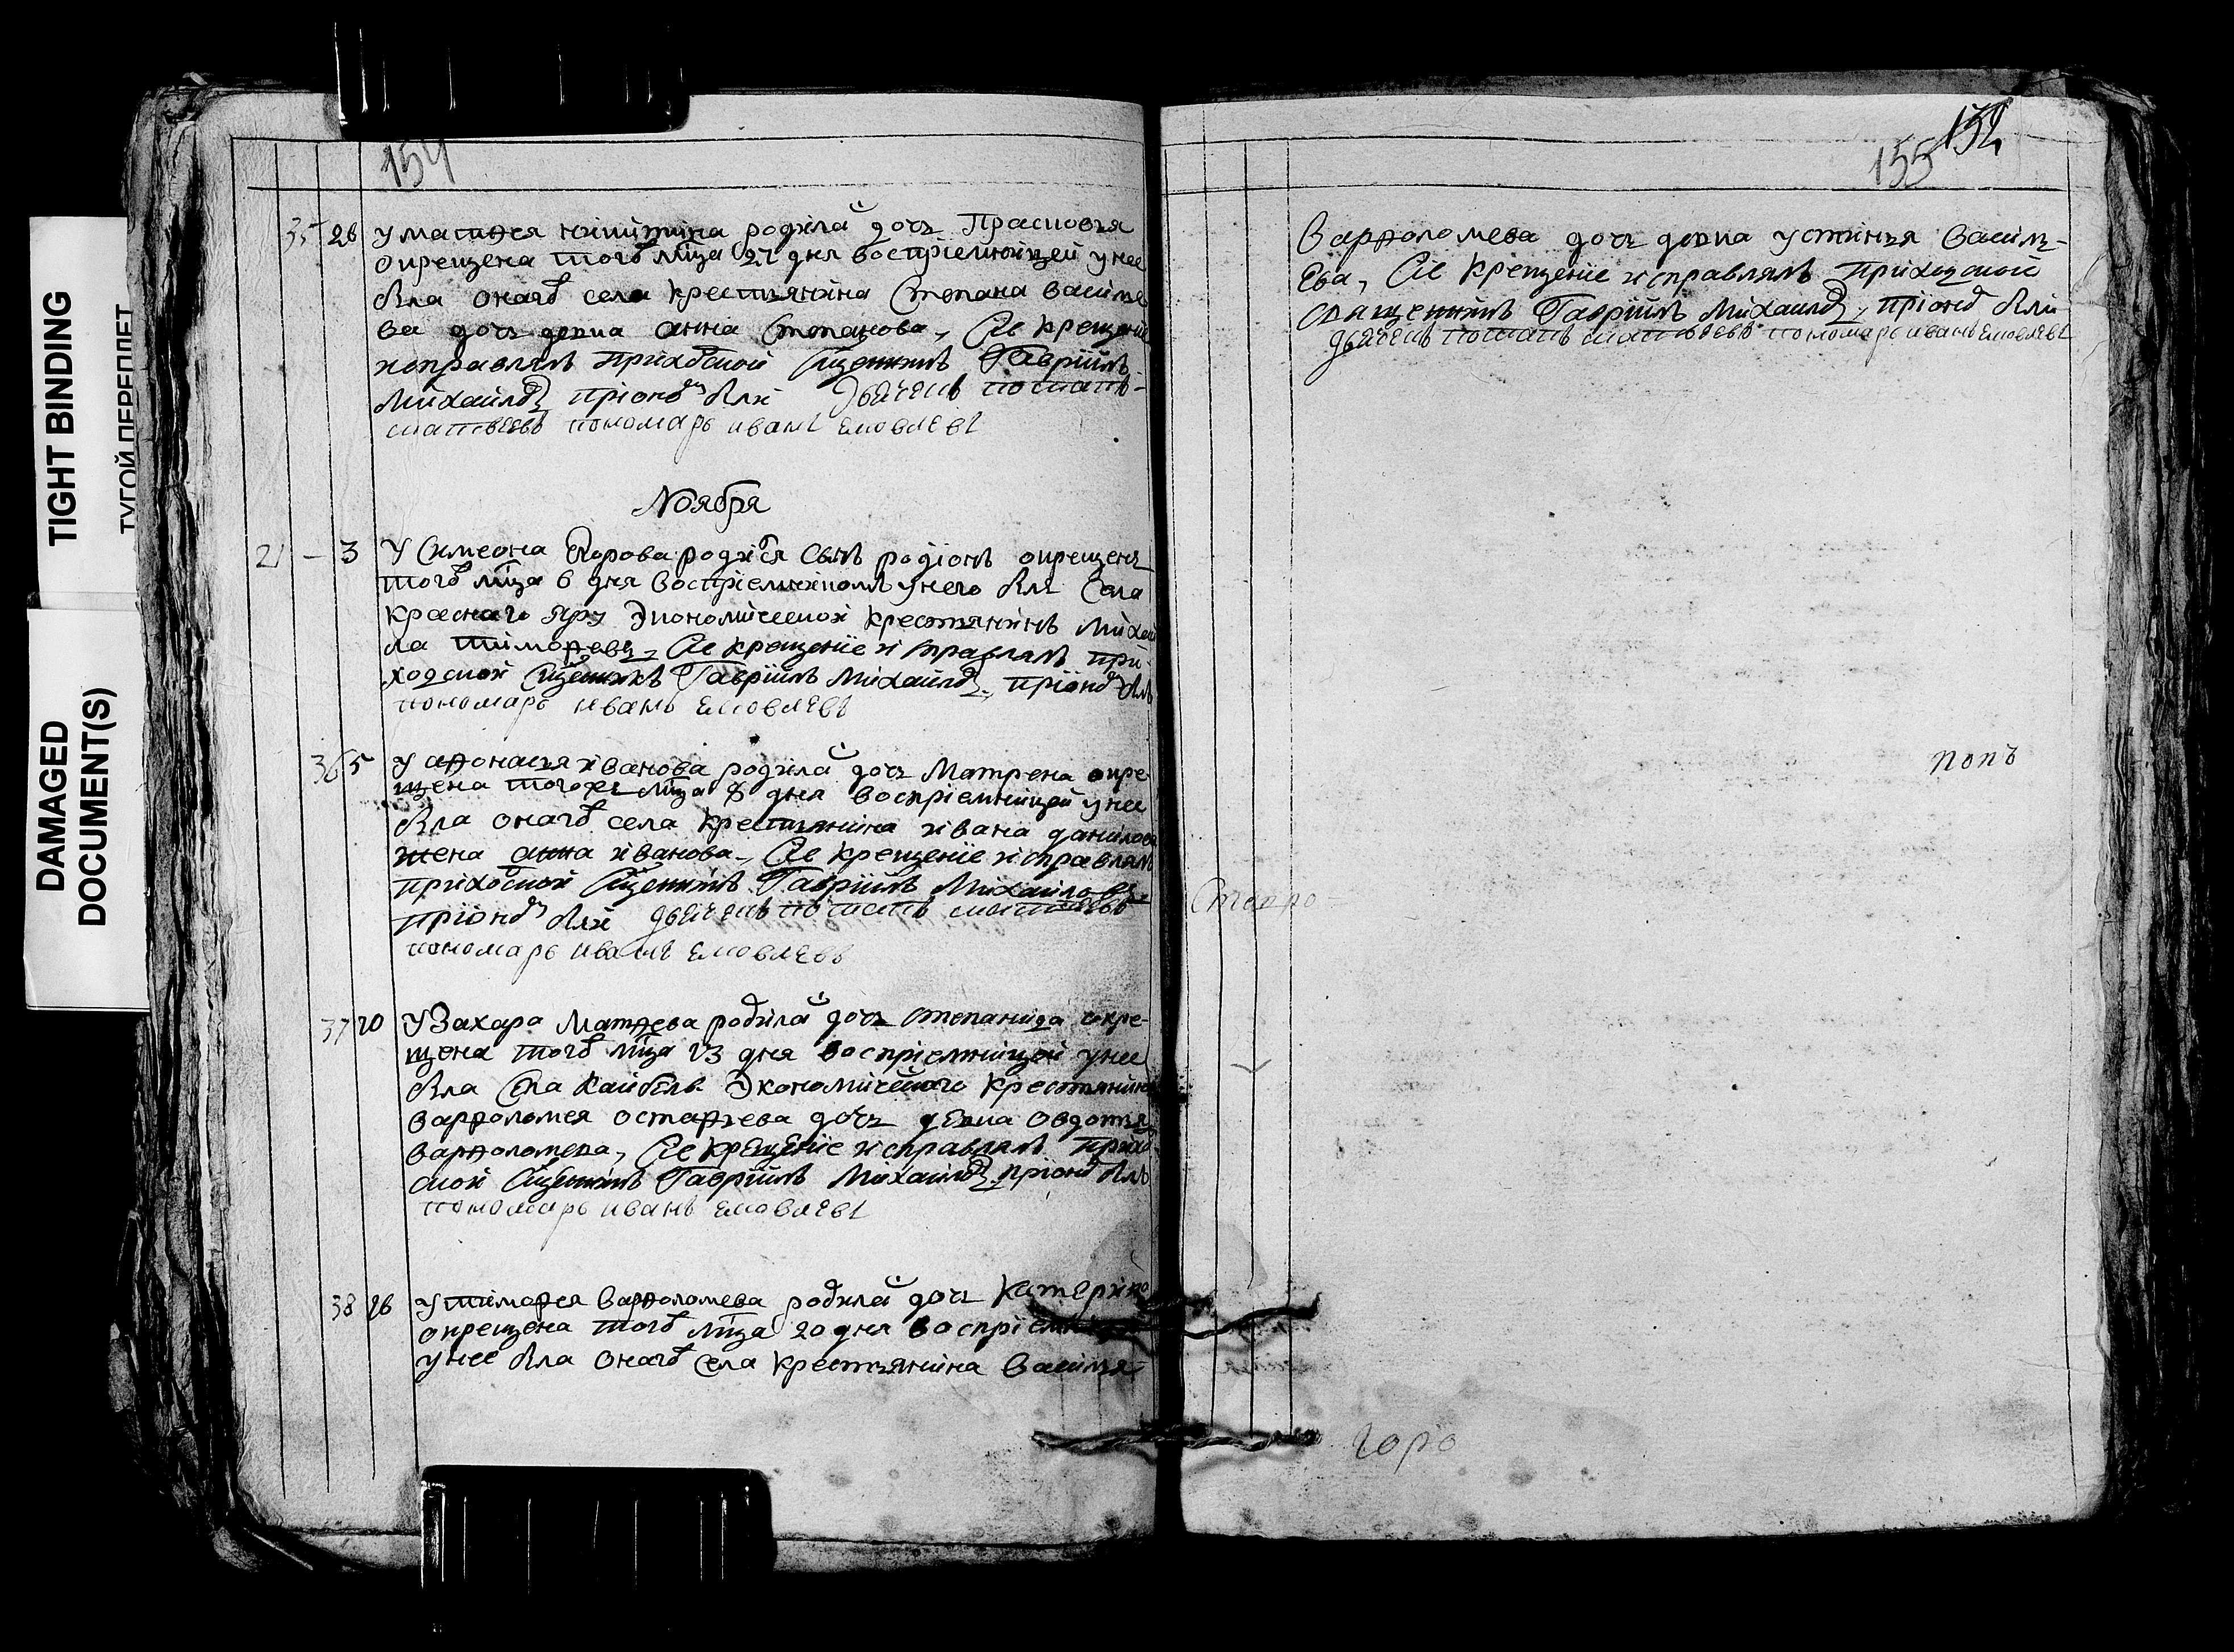 TIGHT BINDING
ТУГОЙ ПЕРЕПЛЕТ
DAMAGED
DOCUMENT(S)
154
35 26 у матфея никитина родила͡с дочь Прасковья
окрещена того мца 27 дня восприемницей у нее
была онаго села крестьянина Степана василье
ва дочь девка анна Степанова, Сие крещение
исправлялъ приходской Сщенникъ Гавріилъ
Михайловъ при ономъ были дьячекъ потапъ
матвеевъ пономарь иванъ яковлевъ
Ноября
21 – 3 У Симеона Егорова родился сынъ родіонъ окрещенъ
того мца 6 дня воспріемникомъ у него былъ Села
Краснаго Яру Экономической крестьянинъ Михай
ла тимофеевъ, Сие крещеніе исправлялъ при
ходской Сщенникъ Гавріилъ Михайловъ, при ономъ былъ
пономарь иванъ яковлевъ
36 5 у афонасья иванова родилас дочь Матрена окре
щена тогожъ мца 8 дня воспріемницей у нее
была онаго села крестьянина ивана данилова
жена анна иванова, Сие крещеніе исправлялъ
приходской Сщенникъ Гавріилъ Михайловъ
при ономъ были дьячекъ потапъ матвеевъ
пономарь иванъ яковлевъ
37 20 У Захара Матфеева родилас дочь степанида окре
щена того мца 23 дня воспріемницей у нее
была Села Кайбелъ Экономическаго крестьянина
варфоломея остафьева дочь девка овдотья
варфоломева, Сие крещеніе исправлялъ приход
ской Сщенникъ Гавріилъ Михайловъ, при ономъ былъ
пономарь иванъ яковлевъ
38 26 у тимофея варфоломева родилас дочь Катерина
окрещена того мца 20 дня воспріемницей
у нее была онаго села крестьянина Василья
155
Варфоломева дочь девка устинья василь
ева, Сие крещеніе исправлялъ приходской
священникъ Гавріилъ Михайловъ, при ономъ были
дьячекъ потапъ матвеевъ пономарь иванъ яковлевъ
попъ